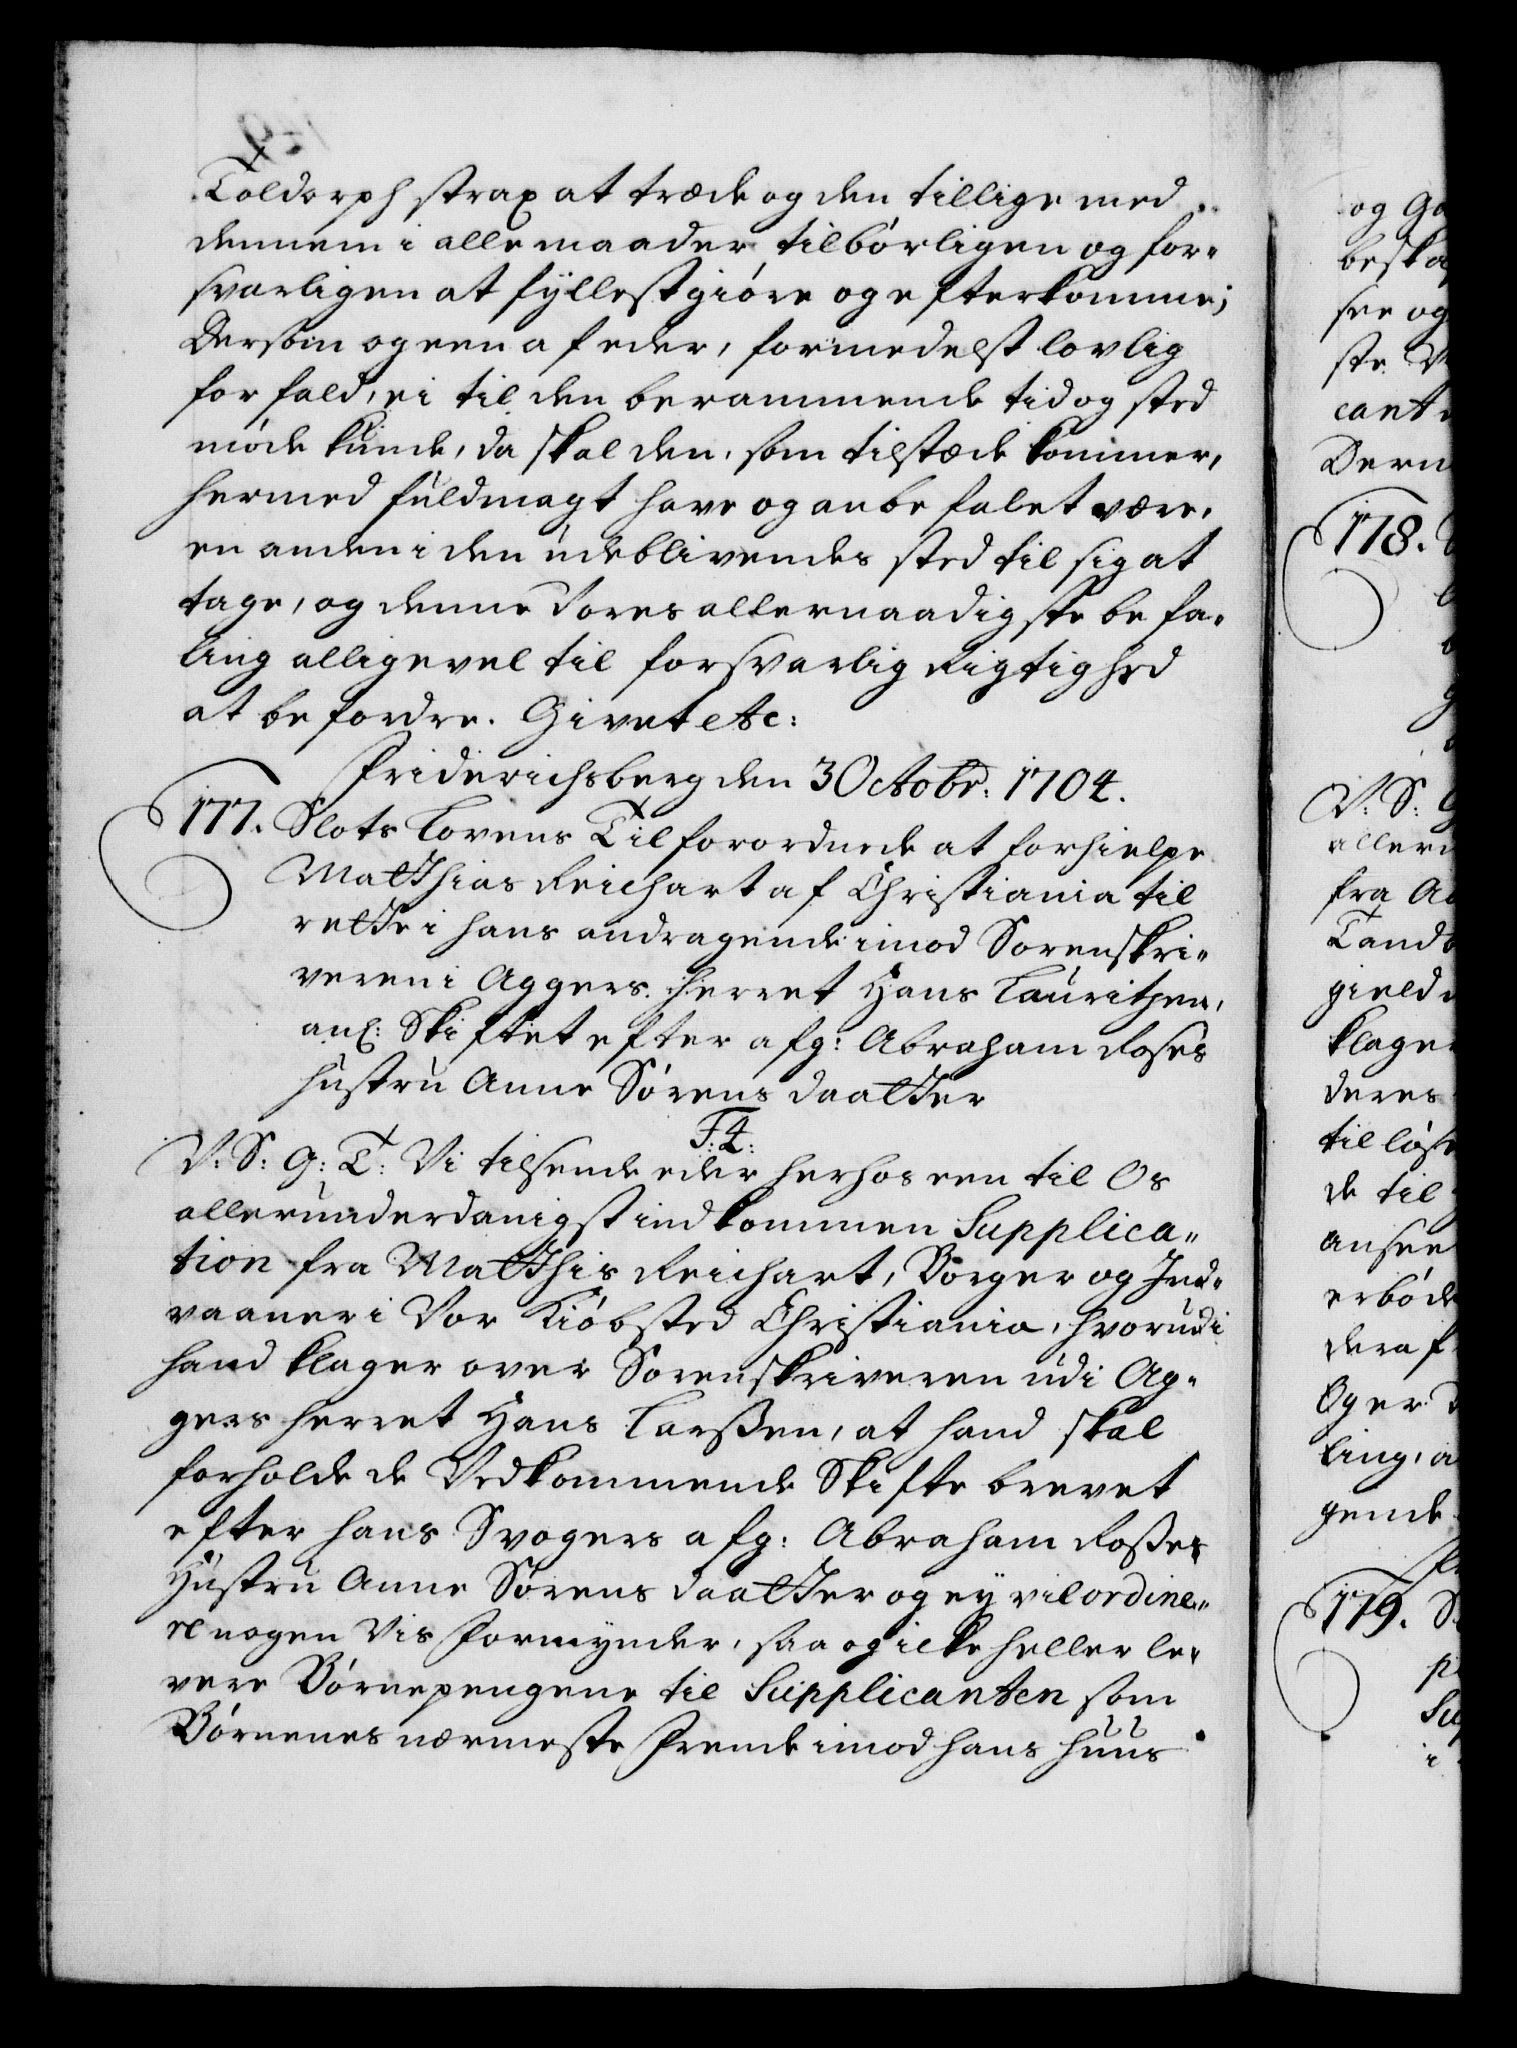 Toldorph strax at træde og den tillige med
dennem i alle maader tilbørligen og for-
svarligen at fyllestgiøre og efterkomme;
Dersom og een af eder, formedelst lovlig
forfald, ei til den berammende tid og sted
møde kunde, da skal den, som tilstæde kommer,
hermed fuldmagt have og anbefalet være,
en anden i den udeblivendes sted til sig at
tage, og denne Vores allernaadigste befa-
ling alligevel til forsvarlig Rigtighed
at befordre. Givet etc:
Friderichsberg den 3 Octobr: 1704.
177. Slots Lovens Tilforordnede at forhielpe
Matthias Reichart af Christiania til
rette i hans andragende imod Sorenskri-
veren i Aggers Herret Hans Lauritzen,
anl: Skiftet efter afg: Abraham Roses
hustru Anne Sørens daatter
F: 4:
V: S: G: T: Vi tilsende eder herhos een til Os
allerunderdanigst indkommen Supplica-
tion fra Matthis Reichart, Borger og Ind-
vaaner i Vor Kiøbsted Christiania, hvorudi
hand klager over Sorenskriveren udi Ag-
gers herret Hans Larssen, at hand skal
forholde de Vedkommende Skifte brevet
efter hans Svogers afg: Abraham Rosses
Hustru Anne Sørens daatter og ey vil ordine-
re nogen Vis Formynder, saa og icke heller le-
vere Børnepengene til Supplicanten som
Børnenes nærmeste Frende imod hans huus
og
see og
cant
178.
V: S:
allern
fra
gield
klage
deres
til løse
de til
ansee
deraf
Og er
ling, a
gende
179. S
i